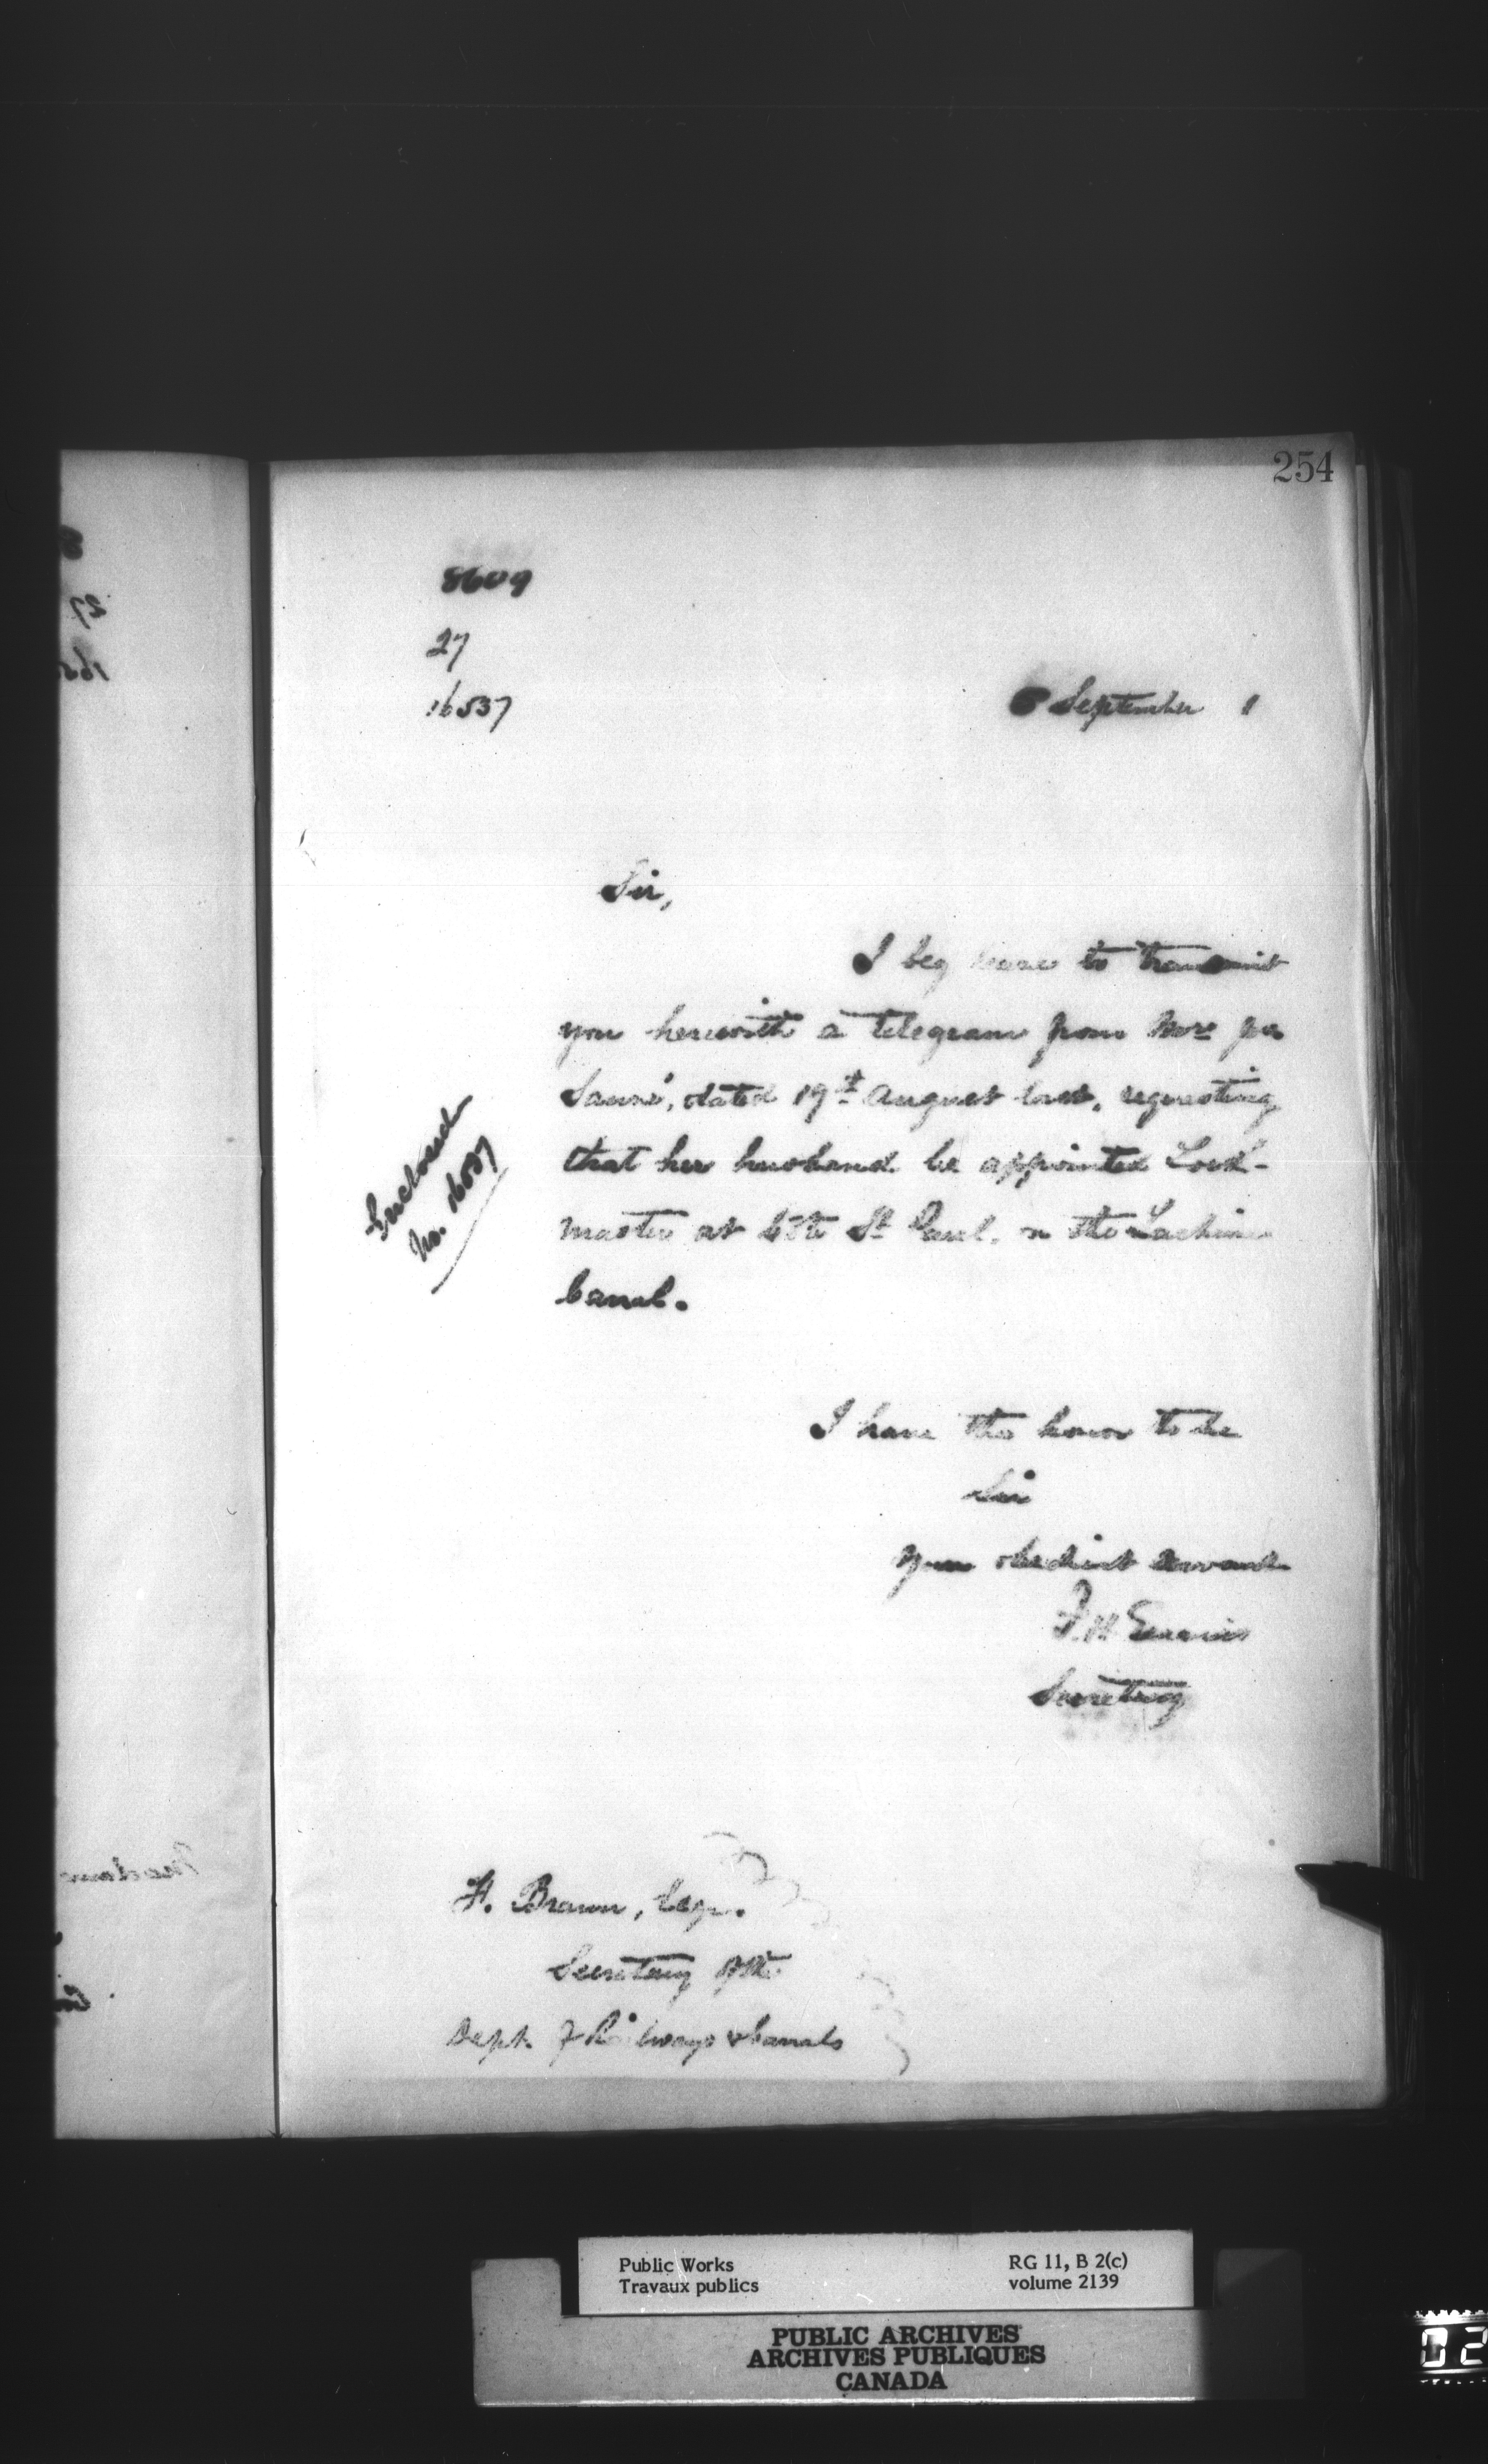 254
8609
27
16537
6 September 1
Sir,
I beg leave to transmit
you herewith a telegram from Mrs
Sauvé, dated 19th August last, requesting
that her husband be appointed Lock-
master at Côte St Paul, on the Lachine
Canal.
Enclosed
No. 16537
I have the honor to be
Sir
Your obedient servant
F. H. Ennis
Secretary
F. Braun, Esqr.
Secretary of the
Dept. of Railways & Canals
Public Works
Travaux publics
RG 11, B 2(c)
volume 2139
PUBLIC ARCHIVES
ARCHIVES PUBLIQUES
CANADA
02